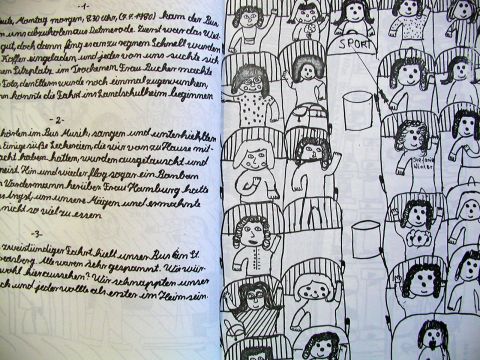 -1-
Heute, Montag morgen, 8.30 Uhr, (9.7.1980) kam der Bus
um uns abzuholen aus Detmerode. Zuerst war das Wet-
gut, doch dann fing es an zu regnen. Schnell wurden
Koffer eingeladen und jeder von uns suchte sich
en Sitzplatz im Trockenen. Frau Sucker machte
Foto, den Eltern wurde noch einmal zugewunken,
nn konnte die Fahrt ins Landschulheim beginnen
-2-
hörten im Bus Musik, sangen und unterhielten
Einige süße Leckereien, die wir von zu Hause mit-
acht haben, hatten, wurden ausgetauscht und
peist. Hin und wieder flog sogar ein Bonbon
Vordermann herüber. Frau Hamburg hatte
es Angst, um unsere Mägen und ermahnte
nicht so viel zu essen
-3-
zweistündiger Fahrt hielt unser Bus in St.
Andreasberg. Alle waren sehr gespannt. Wie wür-
wohl hier aussehen? Wir schnappten unser
ck und jeder wollte als erster im Heim sein.
SPORT
Stefanie
Winter